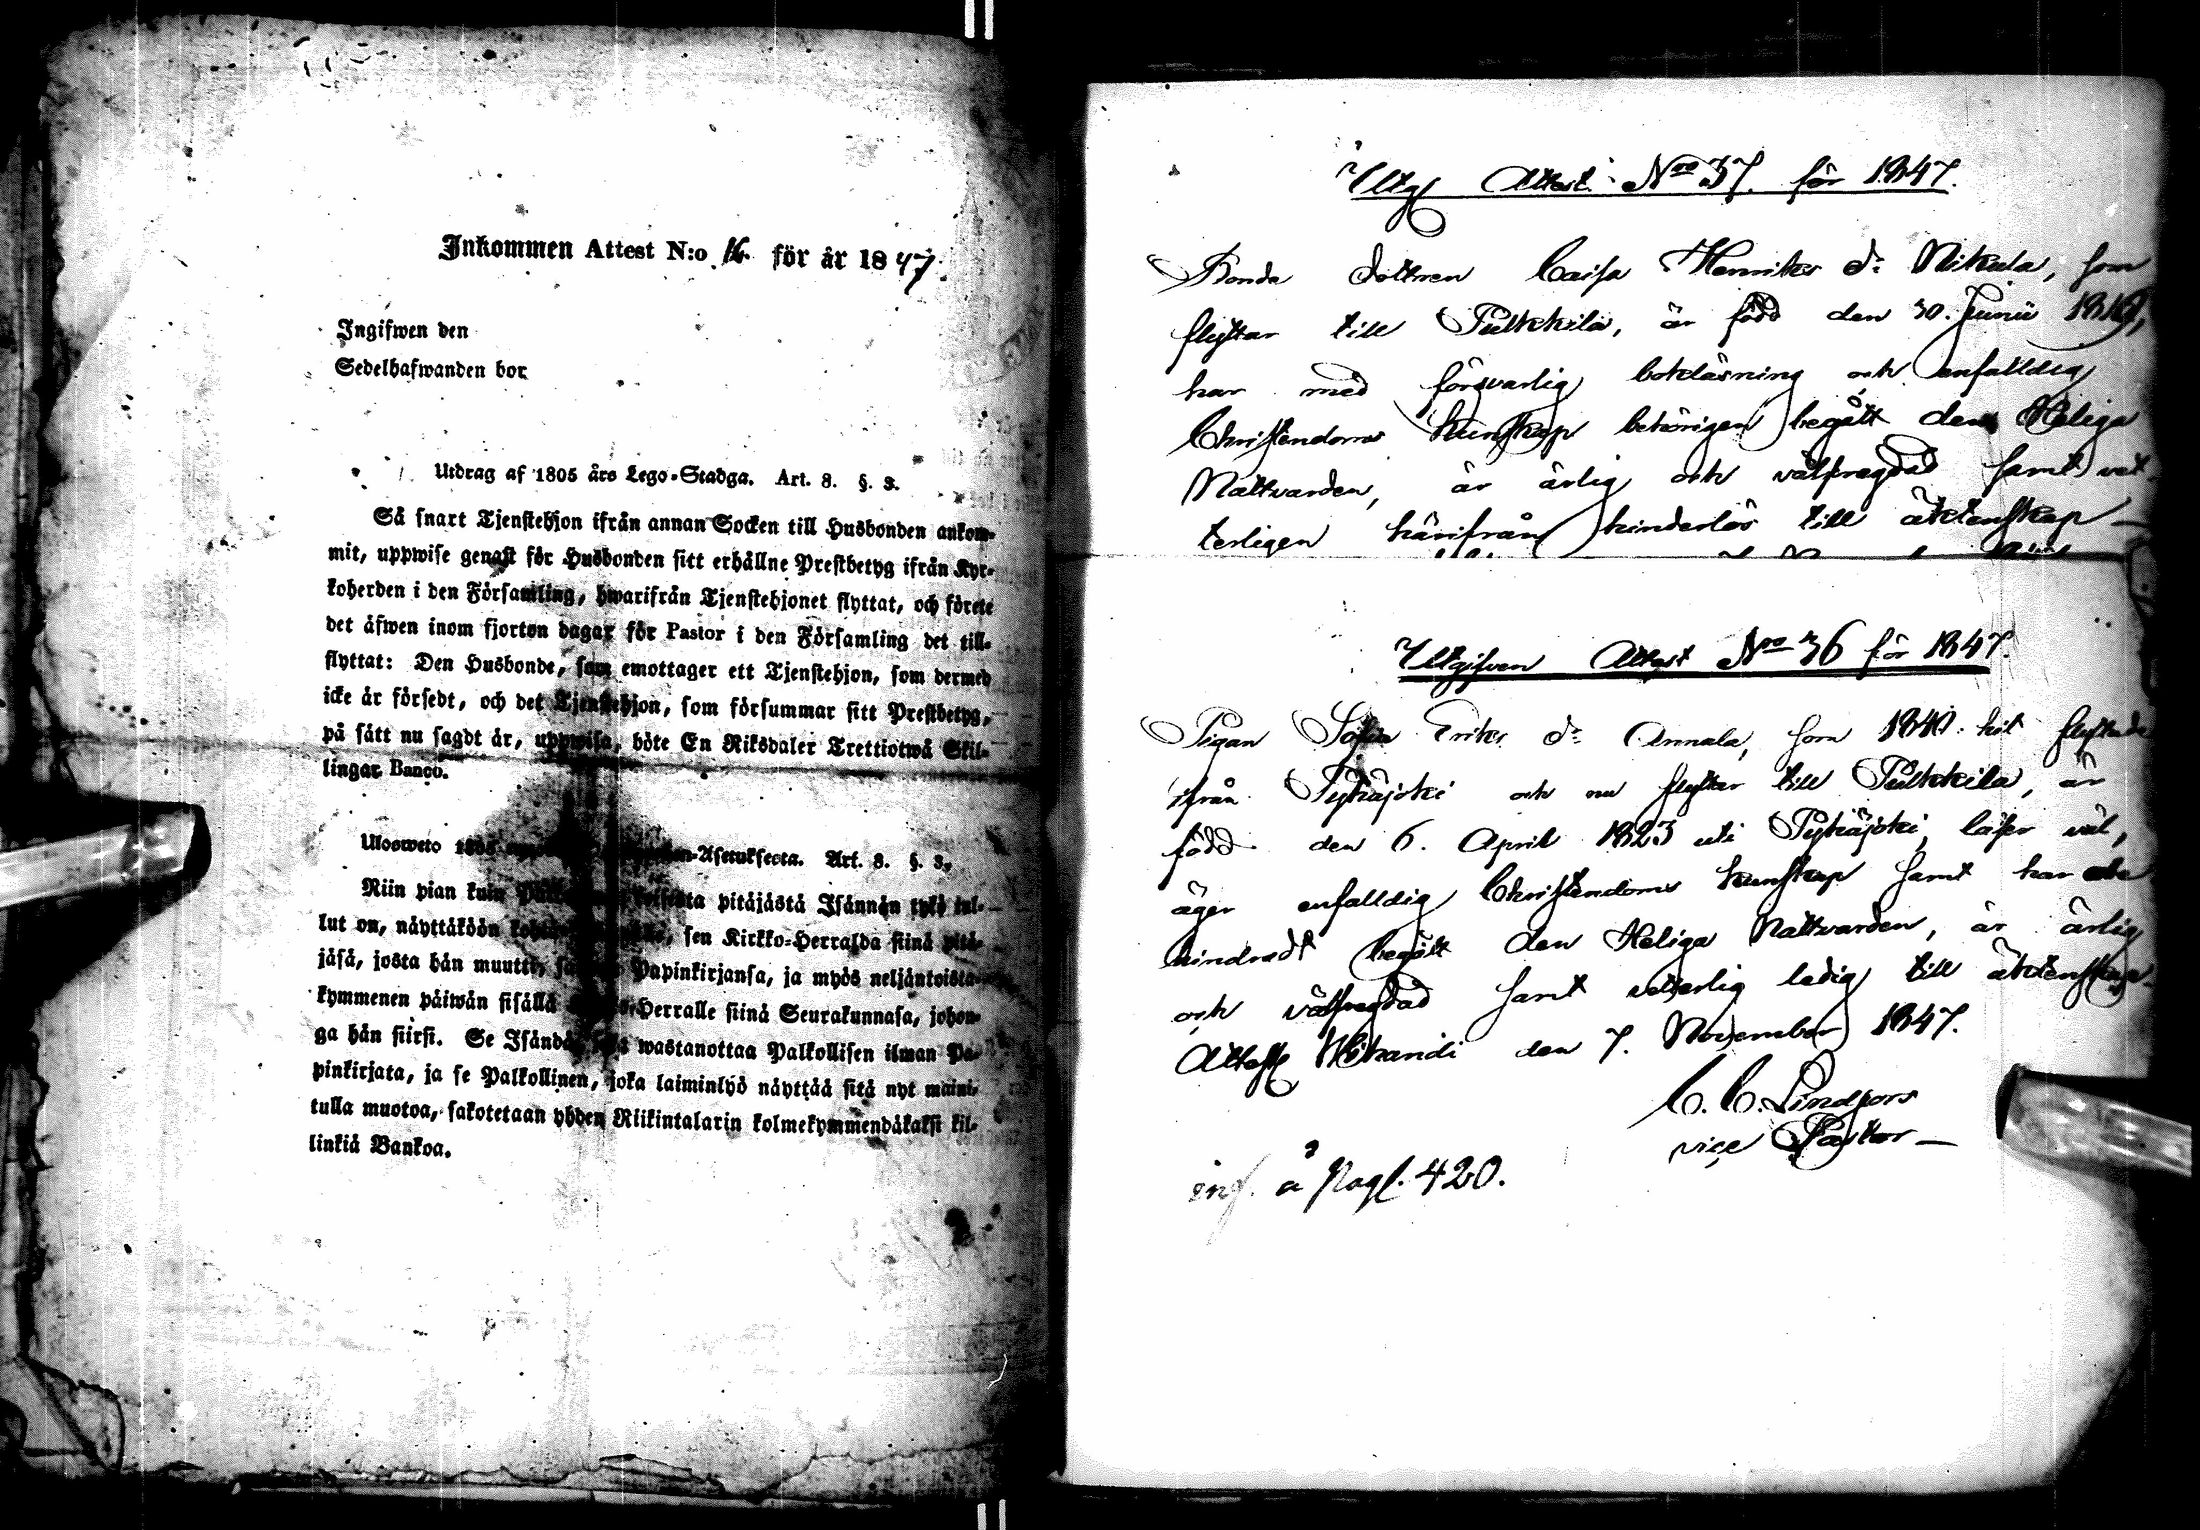 Inkommen Attest N:o 16. för år 1847.
Ingifwen den
Sedelhafwanden bor
Utdrag af 1805 års Lego-Stadga. Art. 8. §. 3.
Så snart Tjenstehjon ifrån annan Socken till Husbonden ankom-
mit, uppwise genast för Husbonden sitt erhållne Prestbetyg ifrån Kyr-
koherden i den Församling, hwarifrån Tjenstehjonet flyttat, och förete
det äfwen inom fjorton dagar för Pastor i den Församling det till-
flyttat: Den Husbonde, som emottager ett Tjenstehjon, som dermed
icke är försedt, och det Tjenstehjon, som försummar sitt Prestbetyg,
på sätt nu sagdt är, uppwisa, böte En Riksdaler Trettiotwå Skil-
lingar Banco.
Ulosweto 1805 -Asetuksesta. Art. 8. §. 3.
Niin pian kuin pitäjästä Isännän tykö tul-
lut on, näyttäköön sen Kirkko-Herralda siinä pitä-
jäsä, josta hän muutti, Papinkirjansa, ja myös neljäntoista-
kymmenen päiwän sisällä Herralle siinä Seurakunnasa, johon-
ga hän siirsi. Se Isändä, wastanottaa Palkollisen ilman Pa-
pinkirjata, ja se Palkollinen, joka laiminlyö näyttää sitä nyt maini-
tulla muotoa, sakotetaan yhden Riikintalarin kolmekymmendäkaksi kil-
linkiä Bankoa.
Utgf Attest Nro 37. för 1847.
Bonde dottren Caisa Henriks dr Nikula, som
flyttar till Pulkkila, är född den 30. Junii
har med försvarlig bokläsning och enfalldig
Christendoms kunskap behörigen begått den Heliga
Nattvarden, är ärlig och välfregdad samt vet-
terligen härifrån hinderlös till äktenskap —
Utgifven Attest Nro 36 för 1847.
Pigan Sofia Eriks dr Annala, som 1840. hit flyttade
ifrån Pyhäjoki och nu flyttar till Pulkkila, är
född den 6. April 1823 uti Pyhäjoki, läser väl,
äger enfalldig Christendoms kunskap samt har obe
hindradt begått den Heliga Nattvarden, är ärlig
och välfregdad samt vetterlig ledig till äktenskap.
Attest den 7. November 1847.
C. C. Lindfors
vice Pastor —
inf. å Pagl. 420.